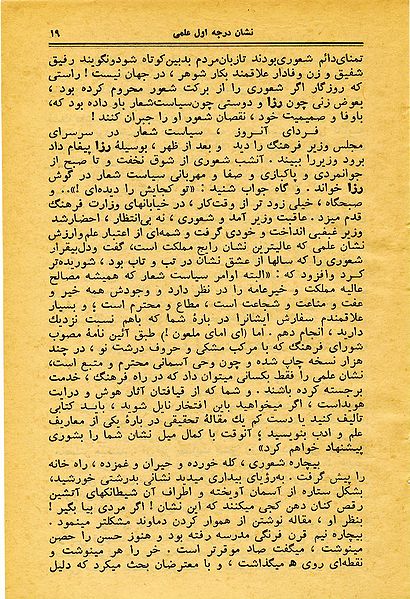 نشان درجه اول علمی ۱۹
تمنای‌دائم شعوری‌بودند تازبان‌مردم بدبین‌کوتاه شود‌ونگویند رفیق
شفیق و زن وفادار علاقمند بکار شوهر ، در جهان نیست ! راستی
که روزگار اگر شعوری را از برکت شعور محروم کرده بود ،
بعوض زنی چون رزا و دوستی چون‌سیاست‌شعار باو داده بود که،
باوفا و صمیمیت خود ، نقصان شعور او را جبران کنند !
فردای آنروز ، سیاست شعار در سرسرای
مجلس وزیر فرهنگ را دید و بعد از ظهر ، بوسیلهٔ رزا پیغام داد
برود وزیررا ببیند . آنشب شعوری از شوق نخفت و تا صبح از
جوانمردی و پاکبازی و صفا و مهربانی سیاست شعار در گوش
رزا خواند . و گاه جواب شنید : «تو کجایش را دیده‌ای !».. و
صبحگاه ، خیلی زود تر از وقت‌کار ، در خیابانهای وزارت فرهنگ
قدم میزد . عاقبت وزیر آمد و شعوری ، نه بی‌انتظار ، احضارشد
وزیر غبغبی انداخت و خودی گرفت و شمه‌ای از اعتبار علم‌وارزش
نشان علمی که عالیترین نشان رایج مملکت است، گفت ودل‌بیقرار
شعوری را که سالها از عشق نشان در تب و تاب بود ، شوریده‌تر
کرد وافزود که : «البته اوامر سیاست شعار که همیشه مصالح
عالیه مملکت و خیرعامه را در نظر دارد و وجودش همه خیر و
عفت و مناعت و شجاعت است ، مطاع و محترم است ؛ و بسیار
علاقمندم سفارش ایشانرا در بارهٔ شما که باهم نسبت نزدیک
دارید ، انجام دهم . اما (ای امای ملعون !) طبق آئین نامهٔ مصوب
شورای فرهنگ که با مرکب مشکی و حروف درشت نو ، در چند
هزار نسخه چاپ شده و چون وحی آسمانی محترم و متبع است،
نشان علمی را فقط بکسانی میتوان داد که در راه فرهنگ ، خدمت
برجسته کرده باشند . و شما که از قیافتان آثار هوش و درایت
هویداست ، اگر میخواهید باین افتخار نایل شوید ، باید کتابی
تألیف کنید یا دست کم یک مقالهٔ تحقیقی در بارهٔ یکی از معاریف
علم و ادب بنویسید ؛ آنوقت با کمال میل نشان شما را بشوری
پیشنهاد خواهم کرد» .
بیچاره شعوری ، کله خورده و حیران و غمزده ، راه خانه
را پیش گرفت . به‌رؤیای بیداری میدید نشانی بدرشتی خورشید،
بشکل ستاره از آسمان آویخته و اطراف آن شیطانکهای آتشین
رقص کنان دهن کجی میکنند که این نشان ! اگر مردی بیا بگیر !
بنظر او ، مقاله نوشتن از هموار کردن دماوند مشکلتر مینمود .
بیچاره نیم قرن فرنگی مدرسه رفته بود و هنوز حسن را حصن
مینوشت ، میگفت صاد موقرتر است . خر را هر مینوشت و
نقطه‌ای روی ه میگذاشت ، و با معترضان بحث میکرد که دلیل